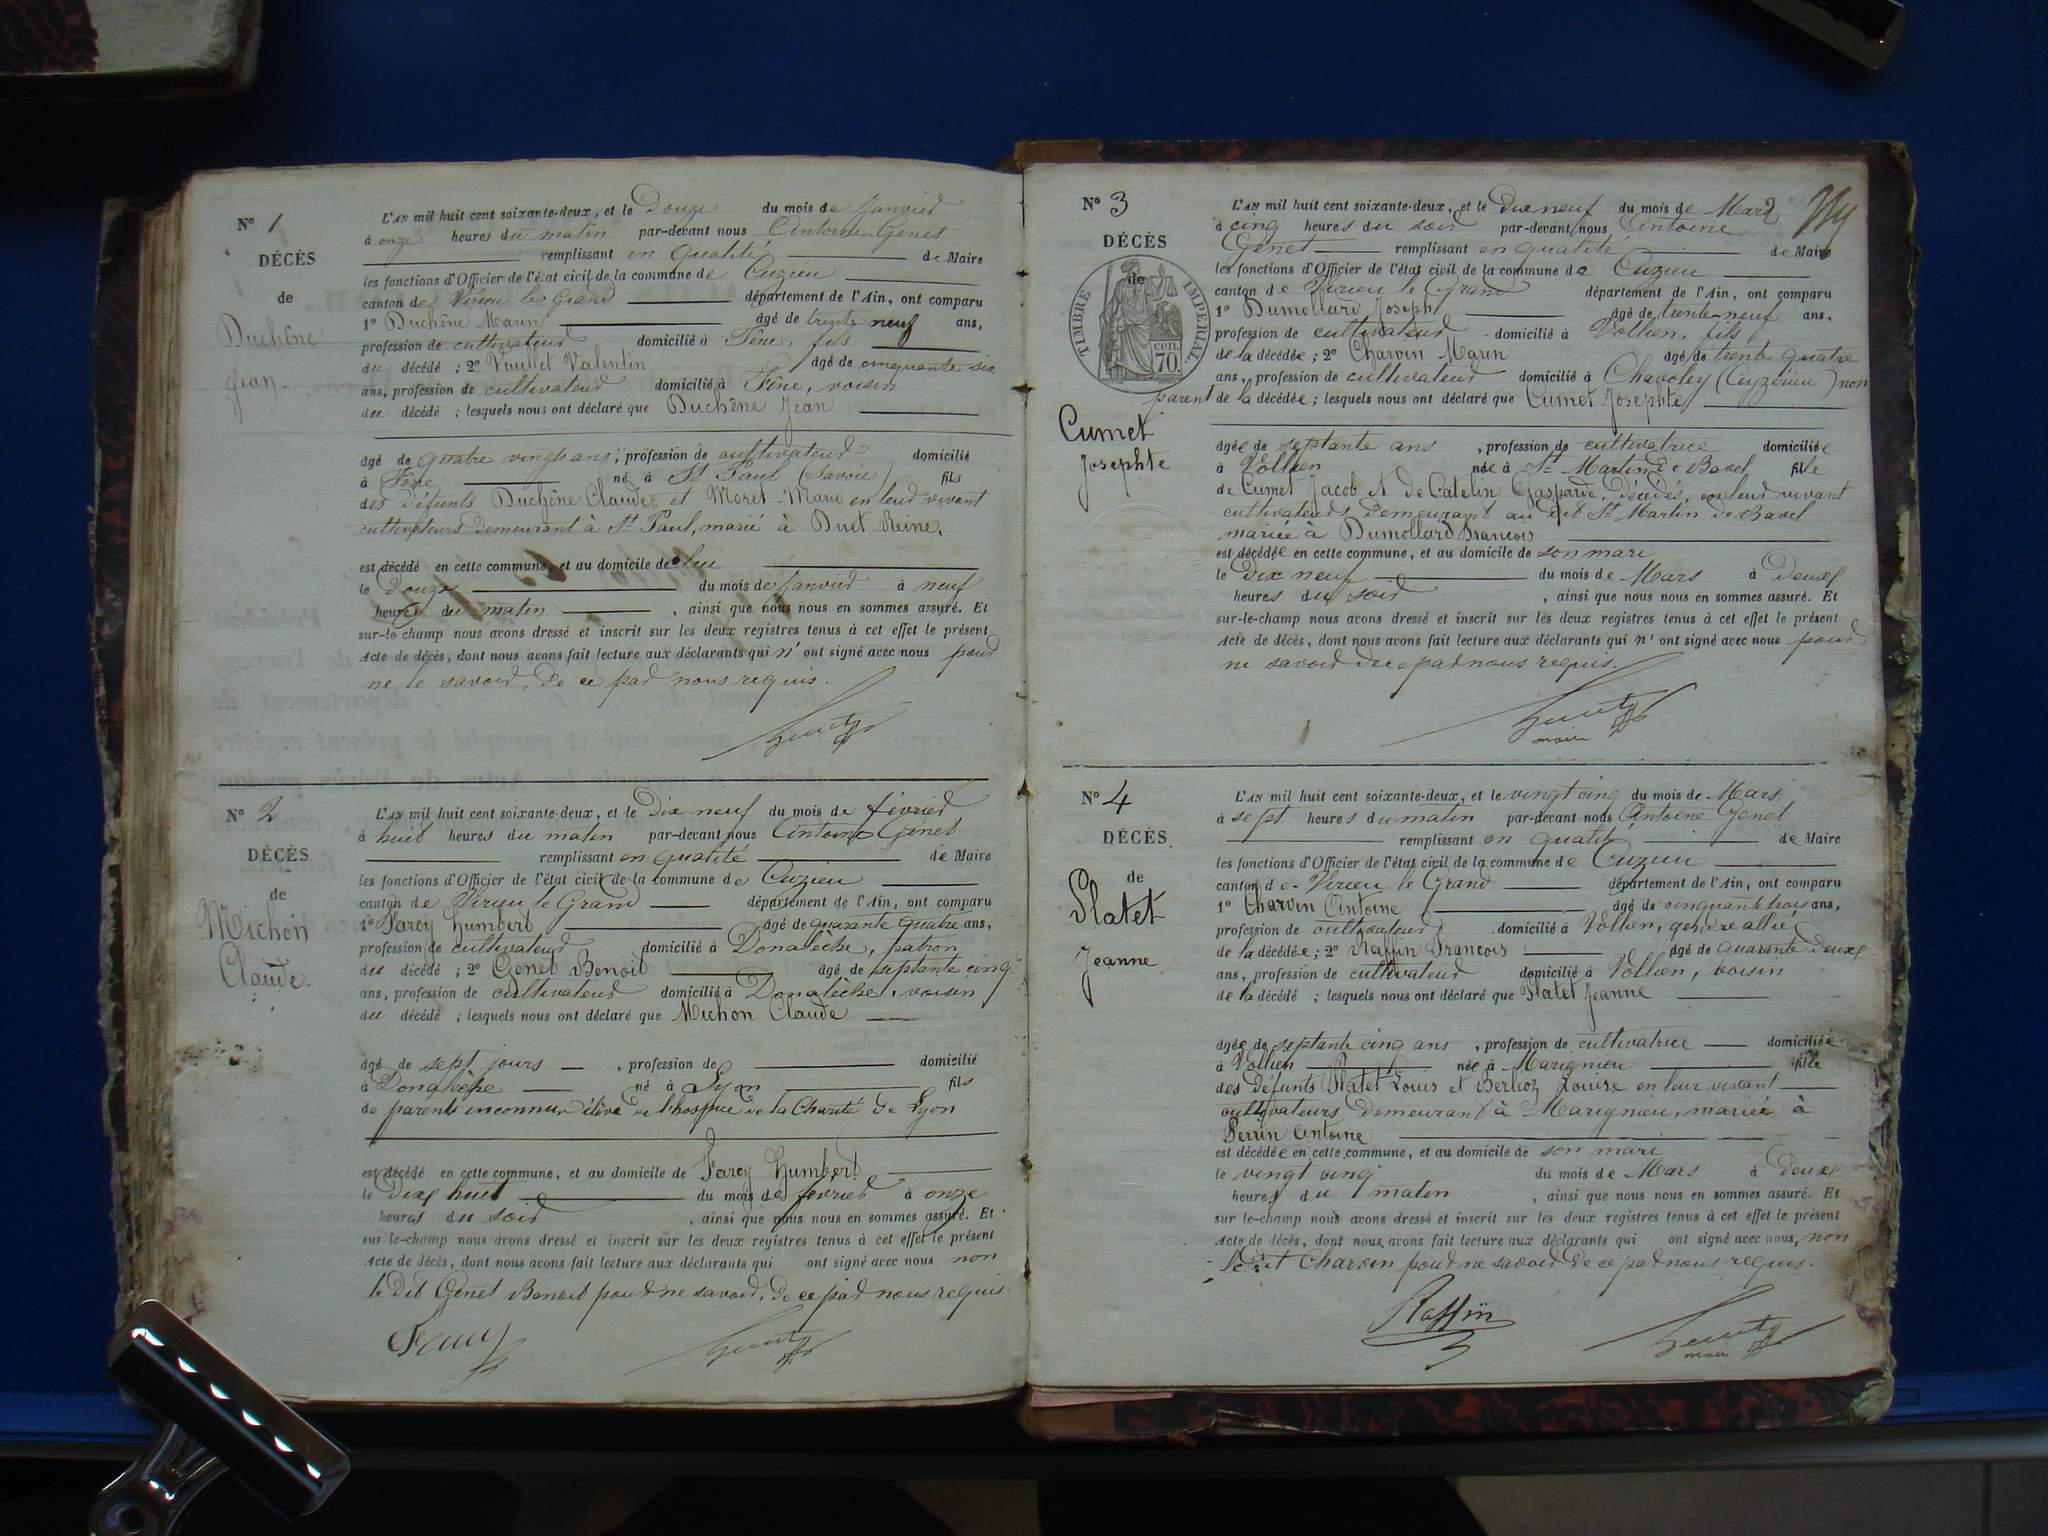 N° 1
DÉCÈS
de
Duchêne
Jean.
L'AN mil huit cent soixante-deux, et le Douze du mois de Janvier
à onze heures du matin par-devant nous Antoine Genet
remplissant en qualité de Maire
les fonctions d'Officier de l'état civil de la commune de Cuzieu
canton de Virieu le Grand département de l'Ain, ont comparu
1° Duchêne Marin âgé de trente neuf ans,
profession de cultivateur domicilié à fils
du décédé ; 2° Vuillet Valentin âgé de cinquante six
ans, profession de cultivateur domicilié à voisin
du décédé ; lesquels nous ont déclaré que Duchêne Jean
âgé de quatre vingts ans, profession de cultivateur domicilié
à né à St Paul (Savoie) fils
des défunts Duchêne Claude et Moret Marie en leur vivant
cultivateurs demeurant à St Paul, marié à Duet Reine,
est décédé en cette commune, et au domicile de lui
le Douze du mois de Janvier à neuf
heures du matin , ainsi que nous nous en sommes assuré. Et
sur-le-champ nous avons dressé et inscrit sur les deux registres tenus à cet effet le présent
Acte de décès, dont nous avons fait lecture aux déclarants qui n'ont signé avec nous pour
ne le savoir, de ce par nous requis.
N° 2
DÉCÈS
de
Michon
Claude.
L'AN mil huit cent soixante-deux, et le Dix neuf du mois de février
à huit heures du matin par-devant nous Antoine Genet
remplissant en qualité de Maire
les fonctions d'Officier de l'état civil de la commune de Cuzieu
canton de Virieu le Grand département de l'Ain, ont comparu
1° Farcy Humbert âgé de quarante quatre ans,
profession de cultivateur domicilié à Donalèche, patron
du décédé ; 2° Genet Benoit âgé de septante cinq
ans, profession de cultivateur domicilié à Donalèche, voisin
du décédé ; lesquels nous ont déclaré que Michon Claude
âgé de sept jours , profession de domicilié
à Donalèche né à Lyon fils
de parents inconnus élève de l'hospice de la Charité de Lyon
est décédé en cette commune, et au domicile de Farcy Humbert
le Dix huit du mois de février à onze
heures du soir , ainsi que nous nous en sommes assuré. Et
sur-le-champ nous avons dressé et inscrit sur les deux registres tenus à cet effet le présent
Acte de décès, dont nous avons fait lecture aux déclarants qui ont signé avec nous non
le dit Genet Benoit pour ne savoir, de ce par nous requis.
Farcy
N° 3
DÉCÈS
de
TIMBRE IMPÉRIAL
cen.
70.
Cumet
Josephte
L'AN mil huit cent soixante-deux, et le Dix neuf du mois de Mars
à cinq heures du soir par-devant nous Antoine
Genet remplissant en qualité de Maire
les fonctions d'Officier de l'état civil de la commune de Cuzieu
canton de Virieu le Grand département de l'Ain, ont comparu
1° Dumollard Joseph âgé de trente-neuf ans,
profession de cultivateur domicilié à Vollien, fils
de la décédée ; 2° Charvin Marin âgé de trente quatre
ans, profession de cultivateur domicilié à Chavoley (Ceyzérieu) non
parent de la décédée ; lesquels nous ont déclaré que Cumet Josephte
âgée de septante ans , profession de cultivatrice domiciliée
à Vollien née à St Martin de Bavel fille
de Cumet Jacob et de Catelin Gasparde, décédés, en leur vivant
cultivateurs demeurant au dit St Martin de Bavel
mariée à Dumollard François
est décédée en cette commune, et au domicile de son mari
le Dix neuf du mois de Mars à Deux
heures du soir , ainsi que nous nous en sommes assuré. Et
sur-le-champ nous avons dressé et inscrit sur les deux registres tenus à cet effet le présent
Acte de décès, dont nous avons fait lecture aux déclarants qui n'ont signé avec nous pour
ne savoir de ce par nous requis.
maire
N° 4
DÉCÈS
de
Platet
Jeanne
L'AN mil huit cent soixante-deux, et le vingt cinq du mois de Mars
à sept heures du matin par-devant nous Antoine Genet
remplissant en qualité de Maire
les fonctions d'Officier de l'état civil de la commune de Cuzieu
canton de Virieu le Grand département de l'Ain, ont comparu
1° Charvin Antoine âgé de cinquante trois ans,
profession de cultivateur domicilié à Vollien, gendre allié
de la décédée ; 2° Raffin François âgé de quarante deux
ans, profession de cultivateur domicilié à Vollien, voisin
de la décédé ; lesquels nous ont déclaré que Platet Jeanne
âgée de septante cinq ans , profession de cultivatrice domiciliée
à Vollien née à Marignieu fille
des défunts Platet Louis et Berlioz Louise en leur vivant
cultivateurs demeurant à Marignieu, mariée à
Perrin Antoine
est décédée en cette commune, et au domicile de son mari
le vingt cinq du mois de Mars à Deux
heures du matin , ainsi que nous nous en sommes assuré. Et
sur le-champ nous avons dressé et inscrit sur les deux registres tenus à cet effet le présent
Acte de décès, dont nous avons fait lecture aux déclarants qui ont signé avec nous, non
le dit Charvin pour ne savoir de ce par nous requis.
Raffin
maire